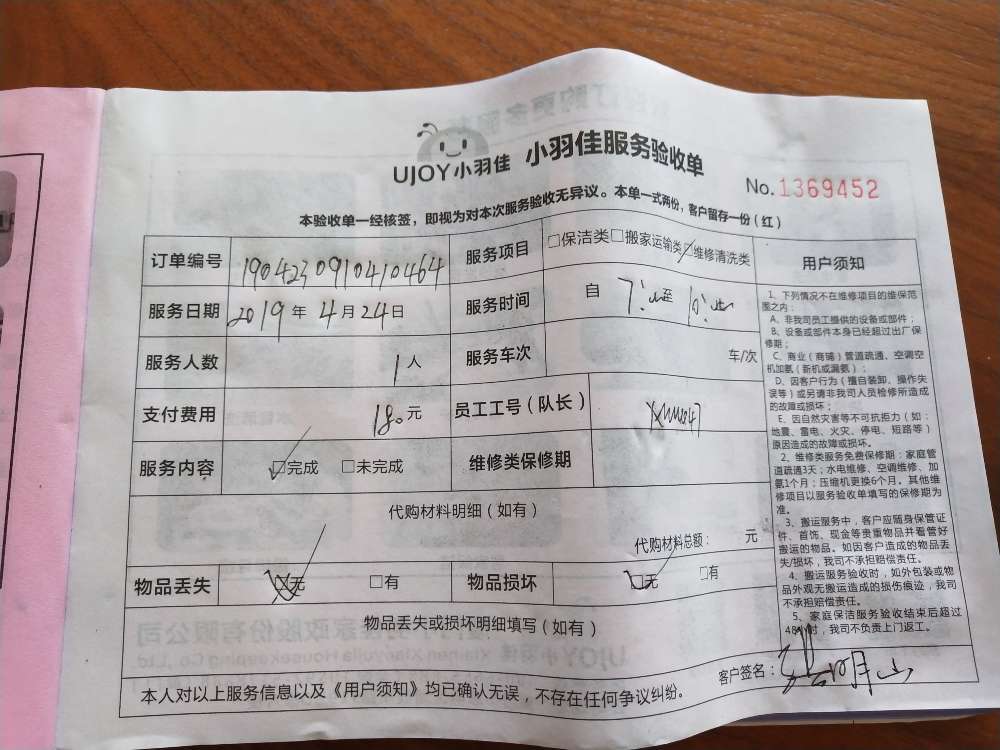 UJOY小羽佳 小羽佳服务验收单
No.1369452
本验收单一经核签，即视为对本次服务验收无异议。本单一式两份，客户留存一份（红）
订单编号 1904230910410464 服务项目 □保洁类□搬家运输类☑维修清洗类
服务日期 2019年4月24日 服务时间 自 至
服务人数 1人 服务车次 车/次
支付费用 180元 员工工号（队长）
服务内容 ☑完成 □未完成 维修类保修期
代购材料明细（如有）
代购材料总额： 元
物品丢失 ☑无 □有 物品损坏 ☑无 □有
物品丢失或损坏明细填写（如有）
本人对以上服务信息以及《用户须知》均已确认无误，不存在任何争议纠纷。
客户签名：
用户须知
1、下列情况不在维修项目的维保范
围之内：
A、非我司员工提供的设备或部件；
B、设备或部件本身已经超过出厂保
修期；
C、商业（商铺）管道疏通、空调空
机加氨（新机或漏氨）；
D、因客户行为（擅自装卸、操作失
误等）或另请非我司人员检修所造成
的故障或损坏；
E、因自然灾害等不可抗拒力（如：
地震、雷电、火灾、停电、短路等）
原因造成的故障或损坏。
2、维修类服务免费保修期：家庭管
道疏通3天；水电维修、空调维修、加
氨1个月；压缩机更换6个月。其他维
修项目以服务验收单填写的保修期为
准。
3、搬运服务中，客户应随身保管证
件、首饰、现金等贵重物品并看管好
搬运的物品。如因客户造成的物品丢
失/损坏，我司不承担赔偿责任。
4、搬运服务验收时，如外包装或物
品外观无搬运造成的损伤痕迹，我司
不承担赔偿责任。
5、家庭保洁服务验收结束后超过
48小时，我司不负责上门返工。